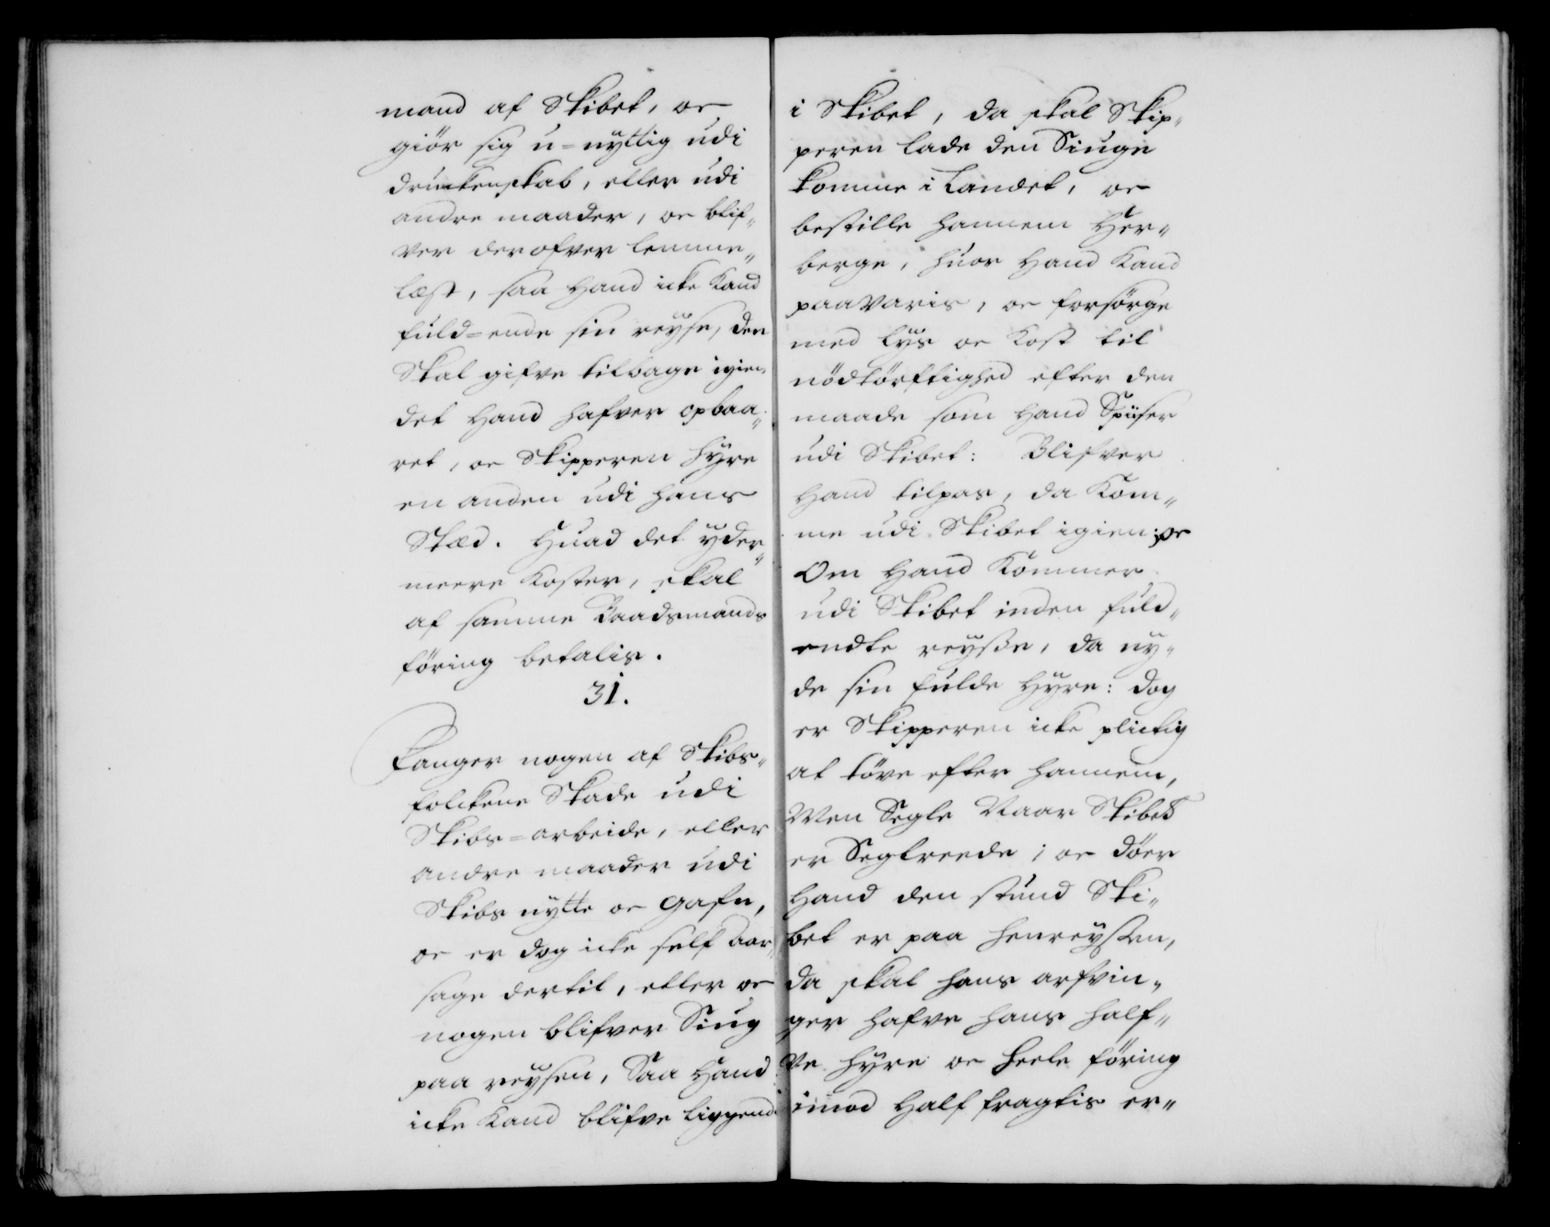 mand af Skibet, oc
giør sig u=nyttig udi
druckenskab, eller udi
andre maader, oc blif„
ver derofver lemme„
læst, saa Hand icke Kand
fuld=ende sin reyse, den
Skal gifve tilbage igien
det Hand hafver opbaa„
ret, oc Skipperen hyre
en anden udi hans
Stæd. Huad det yder„
meere Koster, skal
af samme Baadsmands
föring betalis.
31.
Fanger nogen af Skibs„
folckene Skade udi
Skibs=arbeide, eller
andre maader udi
Skibs nytte oc Gafn,
oc er dog icke self aar„
sage dertil, eller oc
nogen blifver Siug
paa reysen, Saa Hand
icke Kand blifve liggend
i Skibet, da skal Skip„
peren lade den Siuge
komme i Landet, oc
bestille hannem Her„
berge, huor Hand Kand
paavaris, oc forsörge
med lys oc Kost til
nödtörftighed efter den
maade som Hand Spiiser
udi Skibet: Blifver
Hand tilpas, da Kom„
me udi Skibet igien; oc
Om Hand Kommer
udi Skibet inden fuld„
endte reysse, da ny„
de sin fulde Hyre: dog
er Skipperen icke plictig
at töve efter hannem,
Men Segle Naar Skibet
er Seglreede; oc döer
Hand den stund Ski„
bet er paa henreyssen,
da skal hans arfvin„
ger hafve hans half„
ve hyre oc heele föring
imod Half fragtis er„